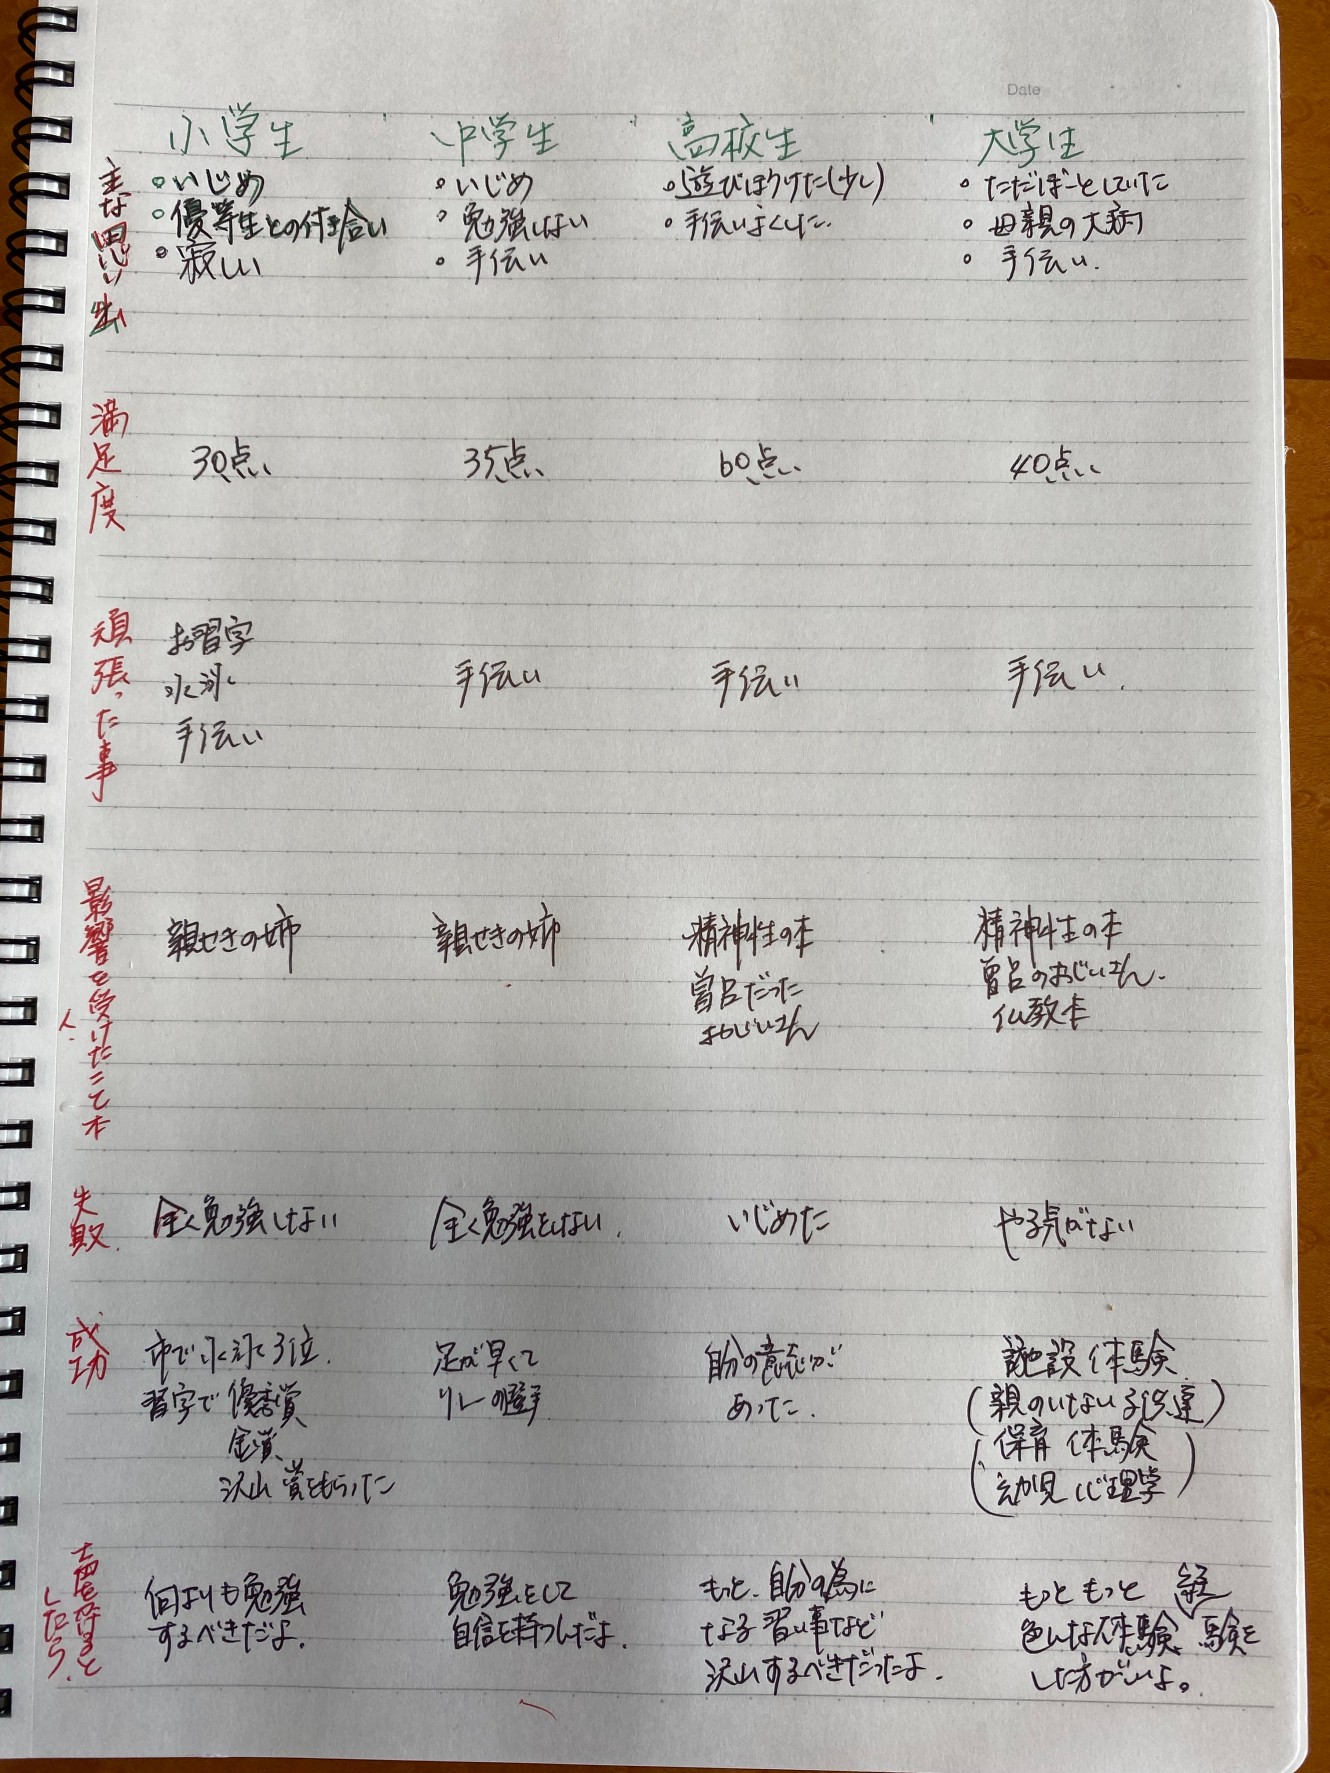 Date
小学生 中学生 高校生 大学生
主な思い出
・いじめ
・優等生との付き合い
・寂しい
・いじめ
・勉強しない
・手伝い
・遊びほうけた(少し)
・手伝いよくした.
・ただぼーとしていた
・母親の大病
・手伝い.
満足度
30点 35点 60点 40点
頑張った事
お習字
水泳
手伝い
手伝い
手伝い
手伝い.
影響を受けたこと 本
人.
親せきの姉
親せきの姉
精神性の本
曾呂だった
おじいさん
精神性の本
曾呂のおじいさん.
仏教本
失敗.
全く勉強しない
全く勉強をしない.
いじめた
やる気がない
成功
市で水泳3位.
習字で優秀賞
金賞、
沢山賞をもらった
足が早くて
リレーの選手
自分の意志が
あった.
施設体験
(親のいない子供達)
(保育体験
幼児心理学)
声を掛けると
したら.
何よりも勉強
するべきだよ.
勉強をして
自信を持つんだよ.
もっと、自分の為に
なる習い事など
沢山するべきだったよ.
もっともっと 経
色んな体験、験を
した方がいいよ。